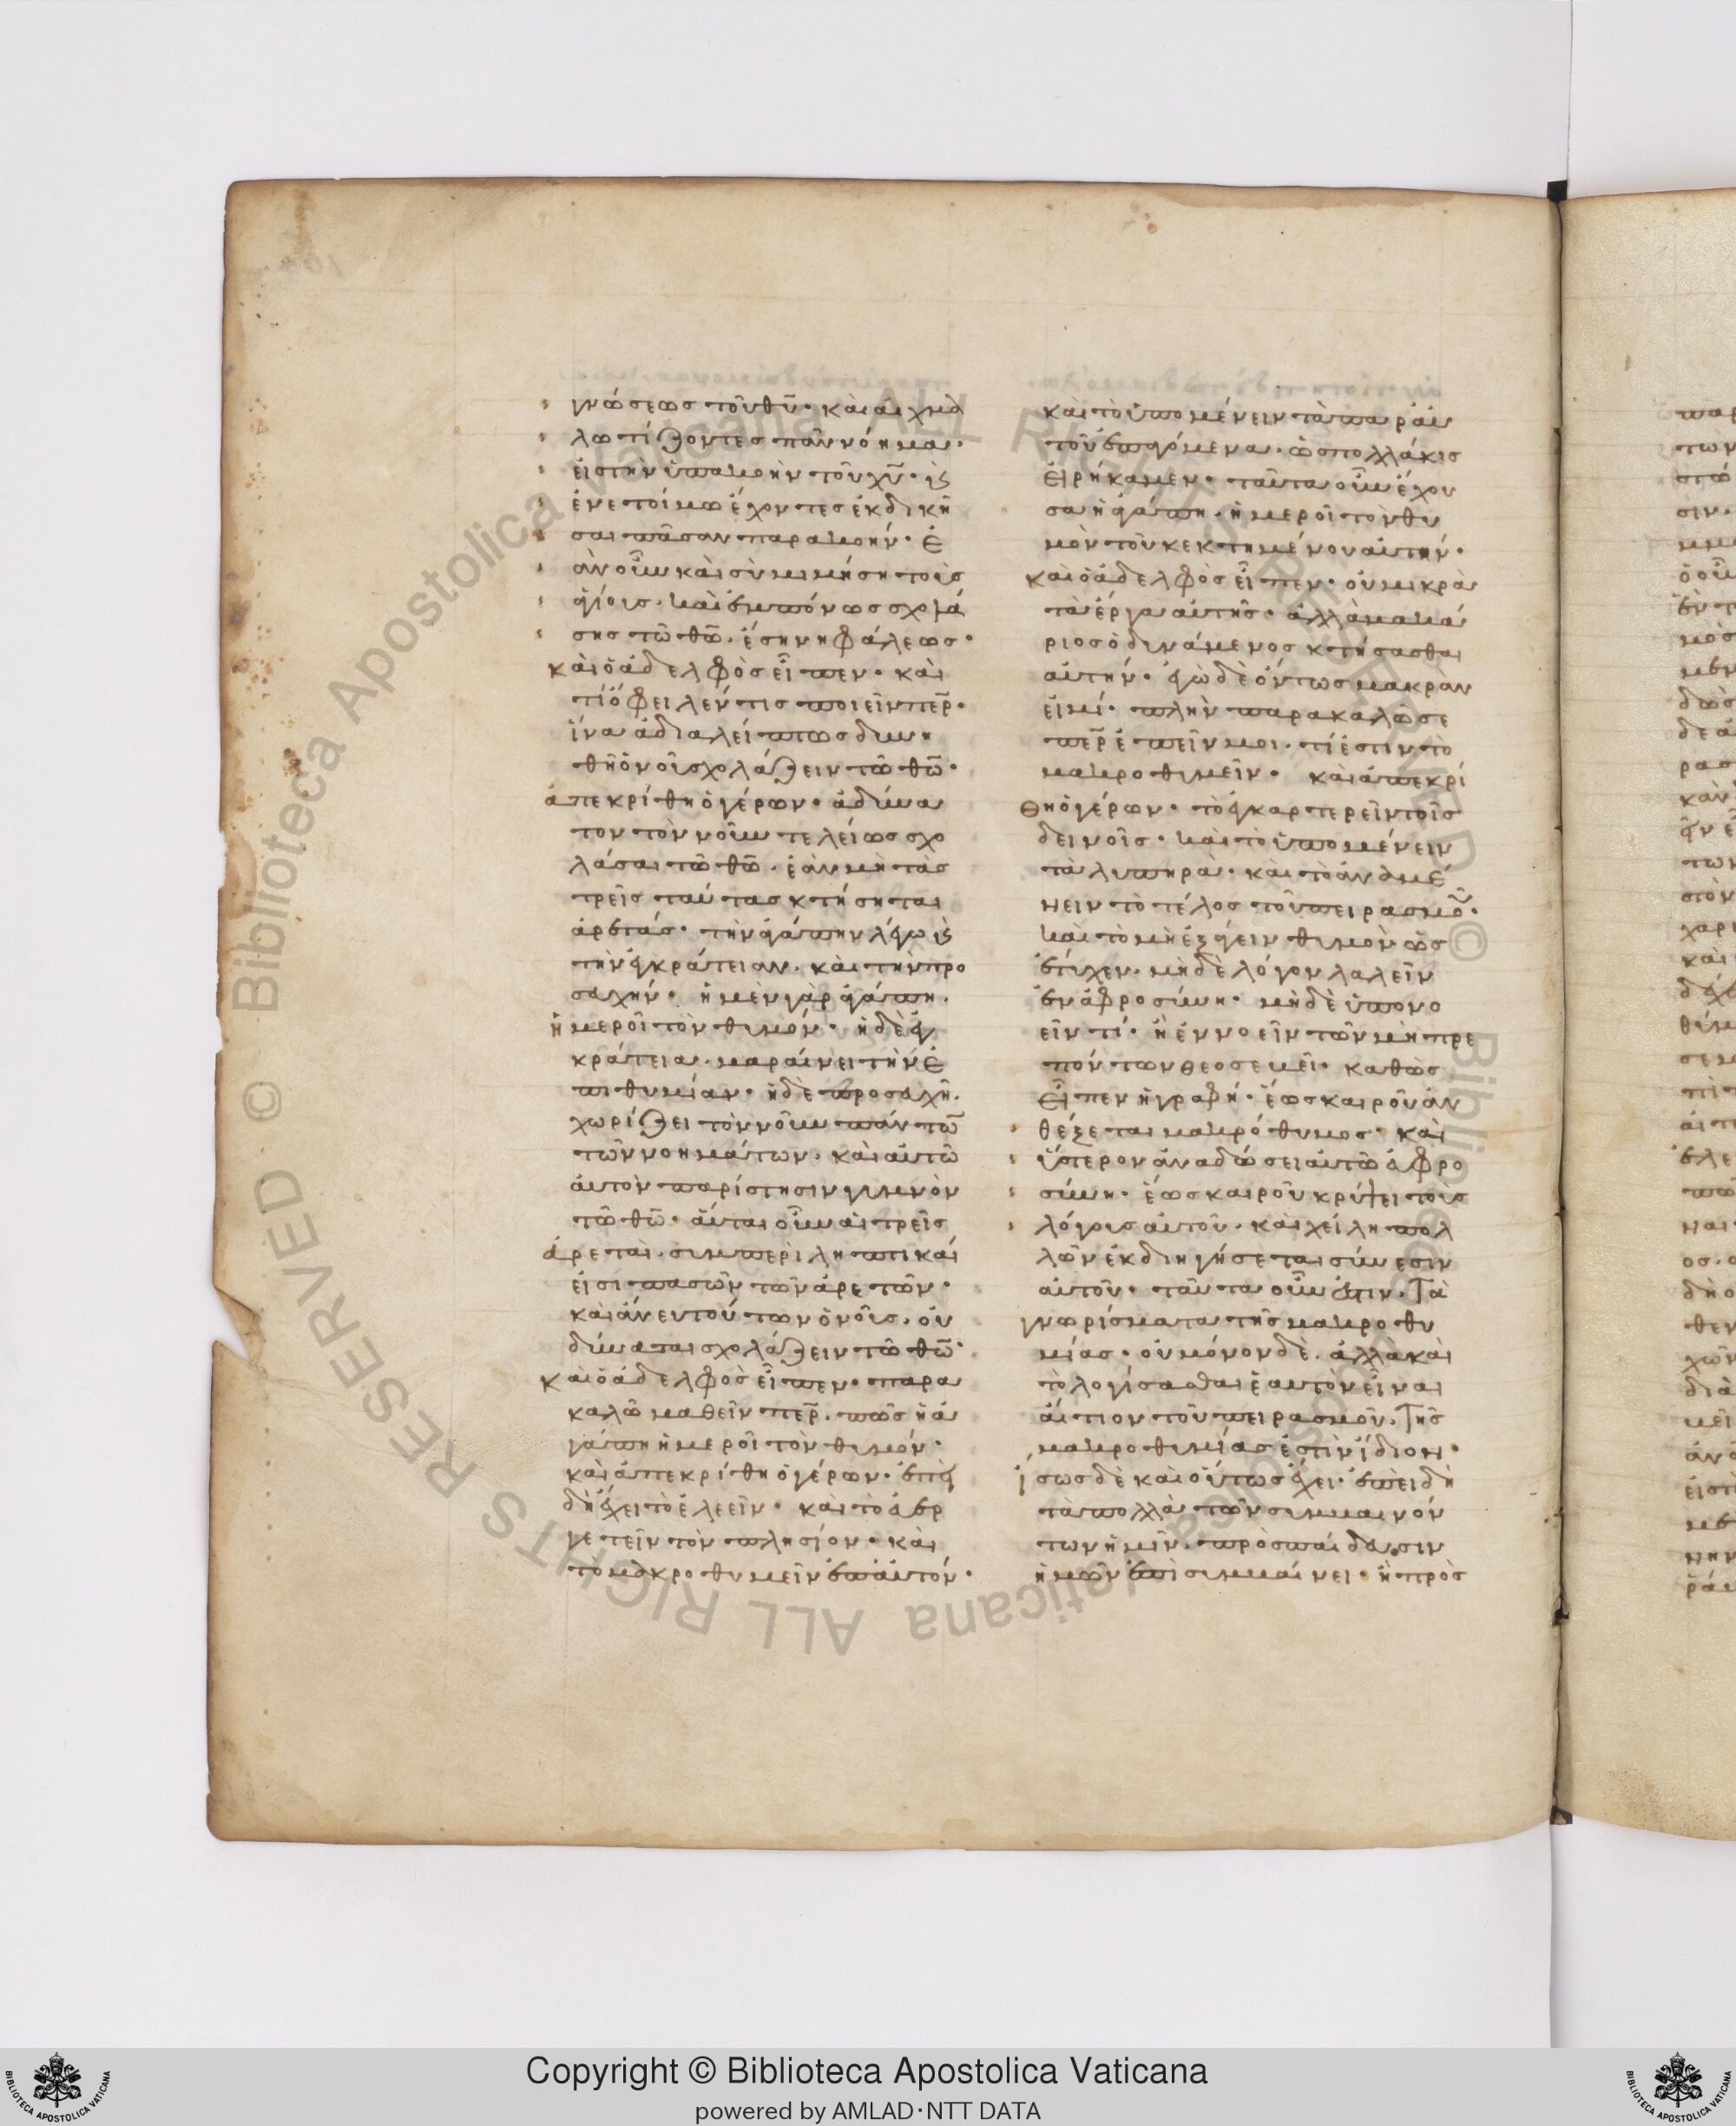 γνώσεως τοῦ θῡ· καὶ αἰχμα
λωτίζοντες πᾶν νόημα·
εἰς τὴν ὑπακοὴν τοῦ χῡ· καὶ
ἐν ἑτοίμω ἔχοντες ἐκδικῆ
σαι πᾶσαν παρακοήν· ἐ
ὰν οὖν καὶ σὺ μιμήση τοὺς
ἁγίους· καὶ ἐμπόνως σχολά
σης τῶ θῶ· ἔση νηφάλεως·
καὶ ὁ ἀδελφὸς εἶπεν· καὶ
τί ὀφείλέν τις ποιεῖν περ·
ἵνα ἀδιαλείπτως δυνη
θῆ ὁ νοῦς σχολάζειν τῶ θῶ·
ἀπεκρίθη ὁ γέρων· ἀδύνα
τον τὸν νοῦν τελείως σχο
λάσαι τῶ θῶ· ἐὰν μὴ τὰς
τρεῖς ταύτας κτήσηται
ἀρετάς· τὴν ἀγάπην λέγω καὶ
τὴν ἐγκράτειαν· καὶ τὴν προ
σευχήν· ἡ μὲν γὰρ ἀγάπη·
ἡμεροῖ τὸν θυμόν· ἡ δὲ ἐγ
κράτεια· μαραίνει τὴν ἐ
πιθυμίαν· ἡ δὲ προσευχὴ·
χωρίζει τὸν νοῦν πάντων
τῶν νοημάτων· καὶ αὐτῶ
αὐτὸν παρίστησιν γυμνὸν
τῶ θῶ· αὗται οὖν αἱ τρεῖς
ἀρεταὶ· συμπεριληπτικαί
εἰσι πασῶν τῶν ἀρετῶν·
καὶ ἄνευ τούτων ὁ νοῦς· οὐ
δύναται σχολάζειν τῶ θῶ·
καὶ ὁ ἀδελφὸς εἶπεν· παρα
καλῶ μαθεῖν περ· πῶς ἡ ἀ
γάπη ἡμεροῖ τὸν θυμόν·
καὶ ἀπεκρίθη ὁ γέρων· ἐπει
δὴ ἔχει τὸ ἐλεεῖν· καὶ τὸ εὐερ
γετεῖν τὸν πλησίον· καὶ
τὸ μακροθυμεῖν ἐπ αὐτόν·
καὶ τὸ ὑπομένειν τὰ παρ αὐ
τοῦ ἐπαγόμενα· ὡς πολλάκις
εἰρήκαμεν· ταῦτα οὖν ἔχου
σα ἡ ἀγάπη· ἡμεροῖ τὸν θυ
μὸν τοῦ κεκτημένου αὐτήν·
καὶ ὁ ἀδελφὸς εἶπεν· οὐ μικρὰ
τὰ ἔργα αὐτῆς· ἀλλὰ μακά
ριος ὁ δυνάμενος κτήσασθαι
αὐτήν· ἐγὼ δὲ ὄντως μακρὰν
εἰμί· πλὴν παρακαλῶ σε
περ εἰπεῖν μοι· τί ἐστιν τὸ
μακροθυμεῖν· καὶ ἀπεκρί
θη ὁ γέρων· τὸ ἐγκαρτερεῖν τοῖς
δεινοῖς· καὶ τὸ ὑπομένειν
τὰ λυπηρὰ· καὶ τὸ ἀναμέ
νειν τὸ τέλος τοῦ πειρασμοῦ·
καὶ τὸ μὴ ἐξάγειν θυμὸν ὡς
ἔτυχεν· μὴ δὲ λόγον λαλεῖν
ἐν ἀφροσύνη· μὴ δὲ ὑπονο
εῖν τί· ἢ ἐννοεῖν τῶν μὴ πρε
πόντων θεοσεβεῖ· καθὼς
εἶπεν ἡ γραφή· ἕως καιροῦ ἀν
θέξεται μακρόθυμος· καὶ
ὕστερον ἀναδώσει αὐτῶ εὐφρο
σύνη· ἕως καιροῦ κρύψει τοὺς
λόγους αὐτοῦ· καὶ χείλη πολ
λῶν ἐκδιηγήσεται σύνεσιν
αὐτοῦ· ταῦτα οὖν ἐστιν· Τὰ
γνωρίσματα τῆς μακροθυ
μίας· οὐ μόνον δὲ· ἀλλὰ καὶ
τὸ λογίσασθαι ἑαυτὸν εἶναι
αἴτιον τοῦ πειρασμοῦ· Τῆς
μακροθυμίας ἐστὶν ἴδιον·
ἴσως δὲ καὶ οὕτως ἔχει· ἐπειδὴ
τὰ πολλὰ τῶν συμβαινόν
των ἡμῖν· πρὸς παίδευσιν
ἡμῶν ἐπισυμβαίνει· ἢ πρὸς
Copyright © Biblioteca Apostolica Vaticana
powered by AMLAD·NTT DATA